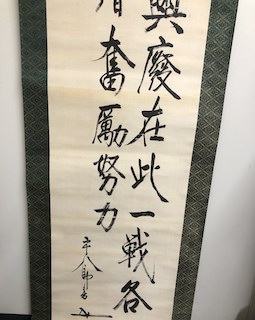 興廢在此一戰各
奮勵努力
平八郎書